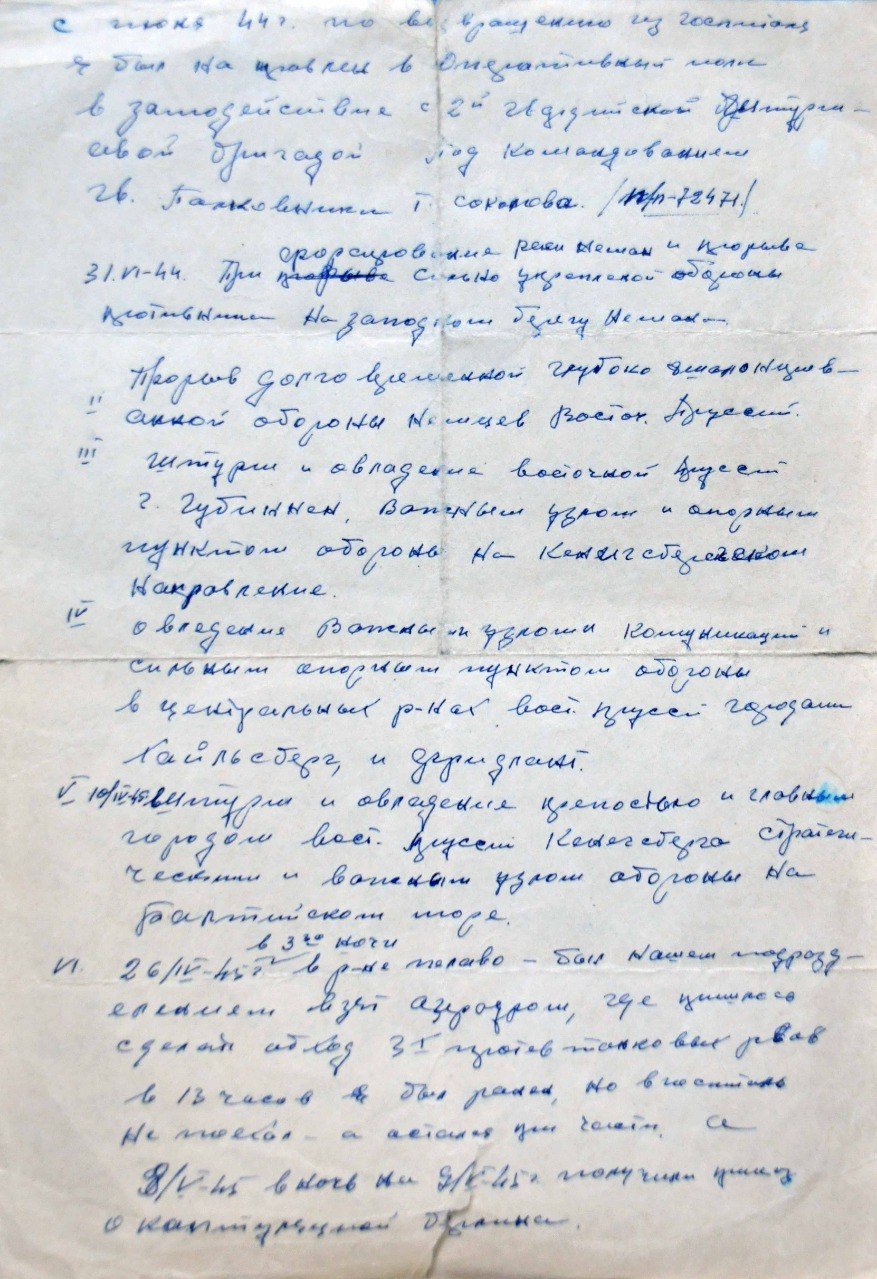 с июня 44 г. по возвращению из госпиталя
я был направлен в Оперативный полк
в замодействие с 2й гвардийской Штурм-
овой бригадой под командованием
гв. Палковника Г. Соколова. /п/п-72471./
форсирование реки Неман и прорыва
31.VI-44. При прорыва сильно укрепленой обороны
противника на западном берегу Немана.
II Прорыв долговременной глубоко эшалонциев-
анной обороны Немцев Восток. Пруссий.
III Штурм и овладение восточной прусси
г. Губиннен, Важным узлом и опорным
пунктом обороны на Кенигсбергском
Накравление.
IV овледение Важными узломи комуникаций и
сильным опорным пунктом обороны
в центральных р-нах вост. прусси городами
Хайльсберг, и Фридлант.
V 10/IV-45 Штурм и овладение крепостью и главным
городом вост. прусси Кенегсберга стратеги-
ческим и важным узлом обороны на
Балтийском море.
в 3 ча ночи
VI. 26/IV-45 г в р-не пелаво - был нашем подразд-
елением взят аэродром, где пришлось
сделать обход 3х протев танковых рвов
в 13 часов я был ранен, но в госпиталь
не поехал - а остался при части. а
8/V-45 в ночь на 9/V-45 г получили приказ
о капитуляцией Берлина.